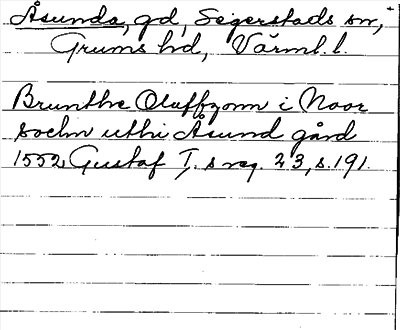 Åsunda, gd, Segerstads sn,
Grums hd, Värml. l.
Brunthe Oluffzonn i Noor
sochn uthi Åsund gård
1552, Gustaf I. s reg. 23, s. 191.